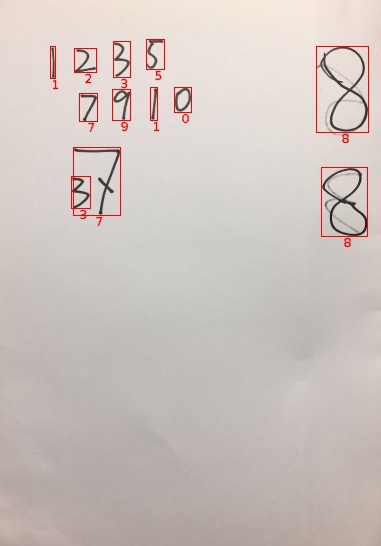 1 2 3 5 8
1 2 3 5
7 9 1 0
7 9 1 0 8
3 7 8
3 7 8